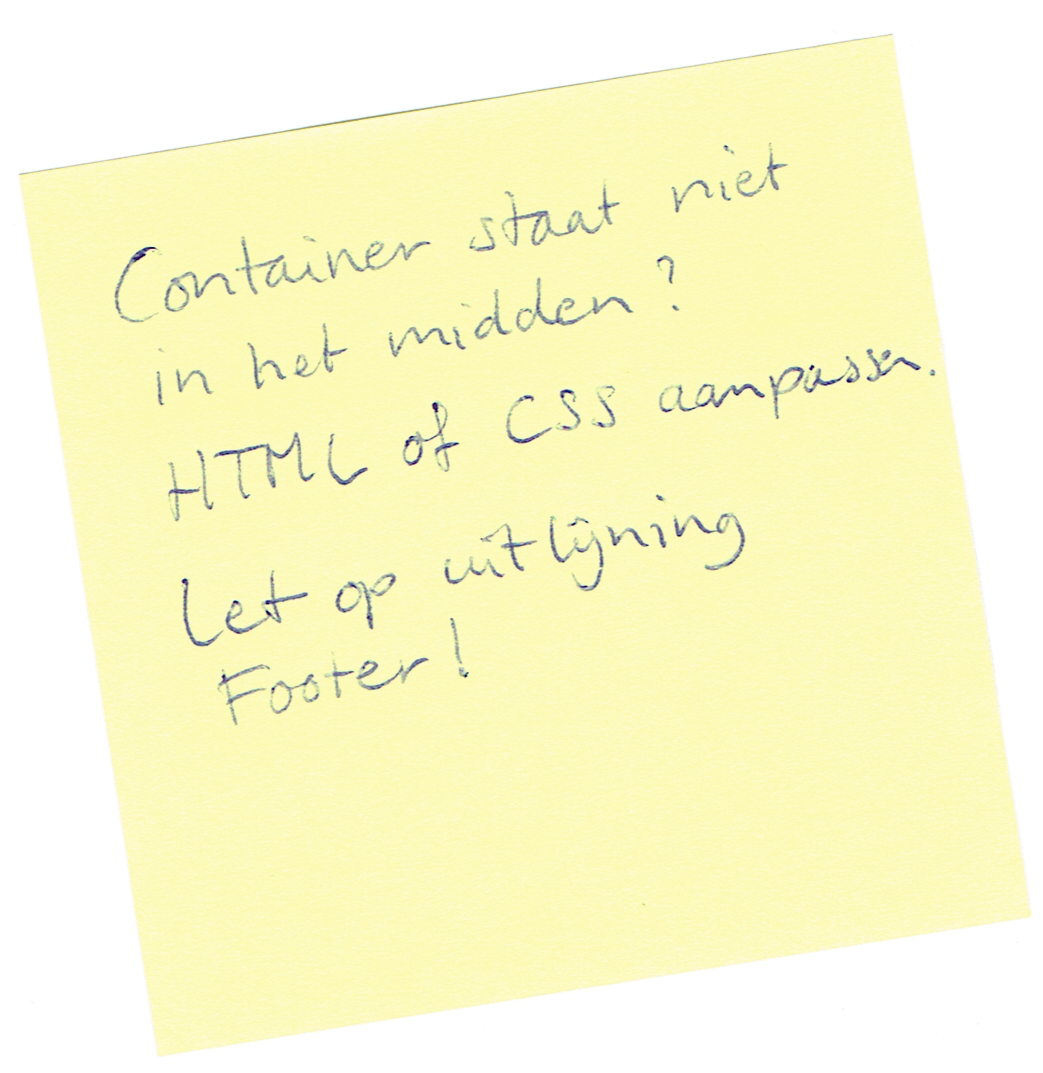 Container staat niet
in het midden?
HTML of CSS aanpassen.
Let op uitlijning
Footer!